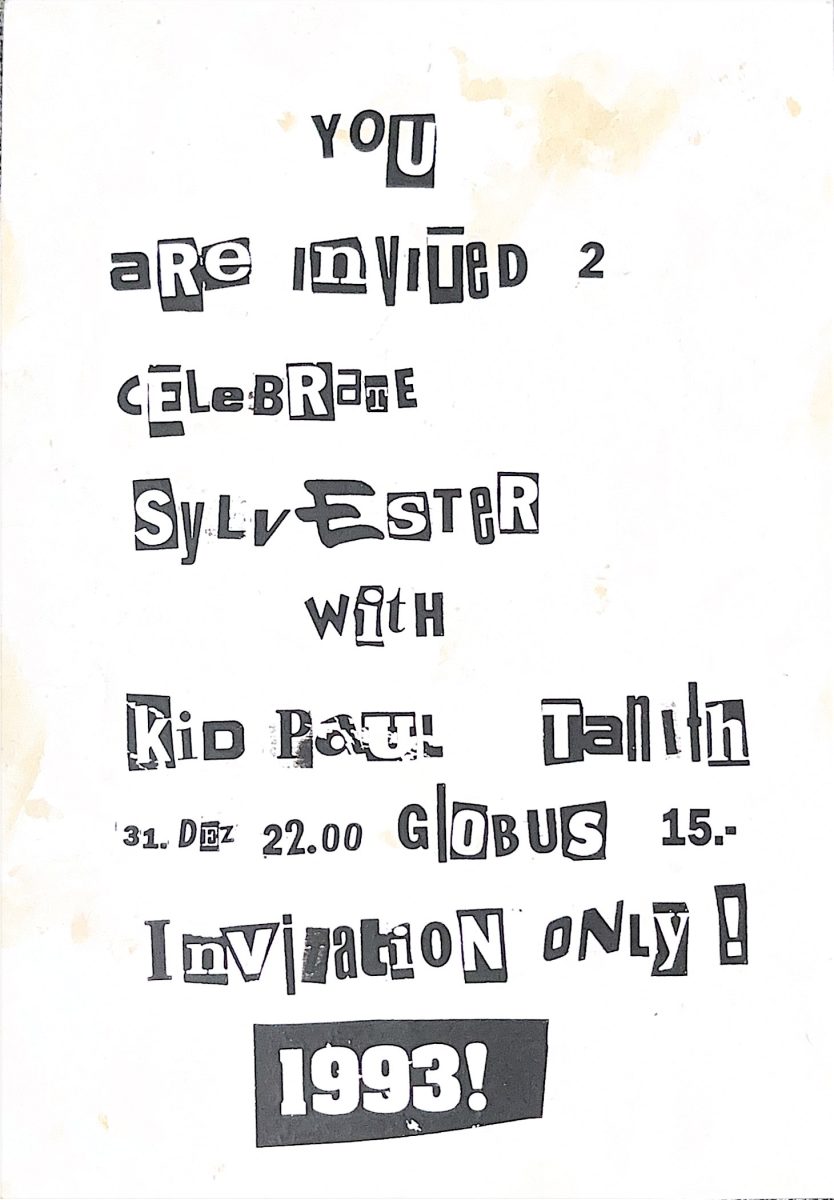 YOU
aRe InVITeD 2
CELeBRaTE
SyLvESTeR
WitH
KiD PaUL TaniTh
31. DEZ 22.00 GlOBUS 15.-
InVitatioN ONLy!
1993!